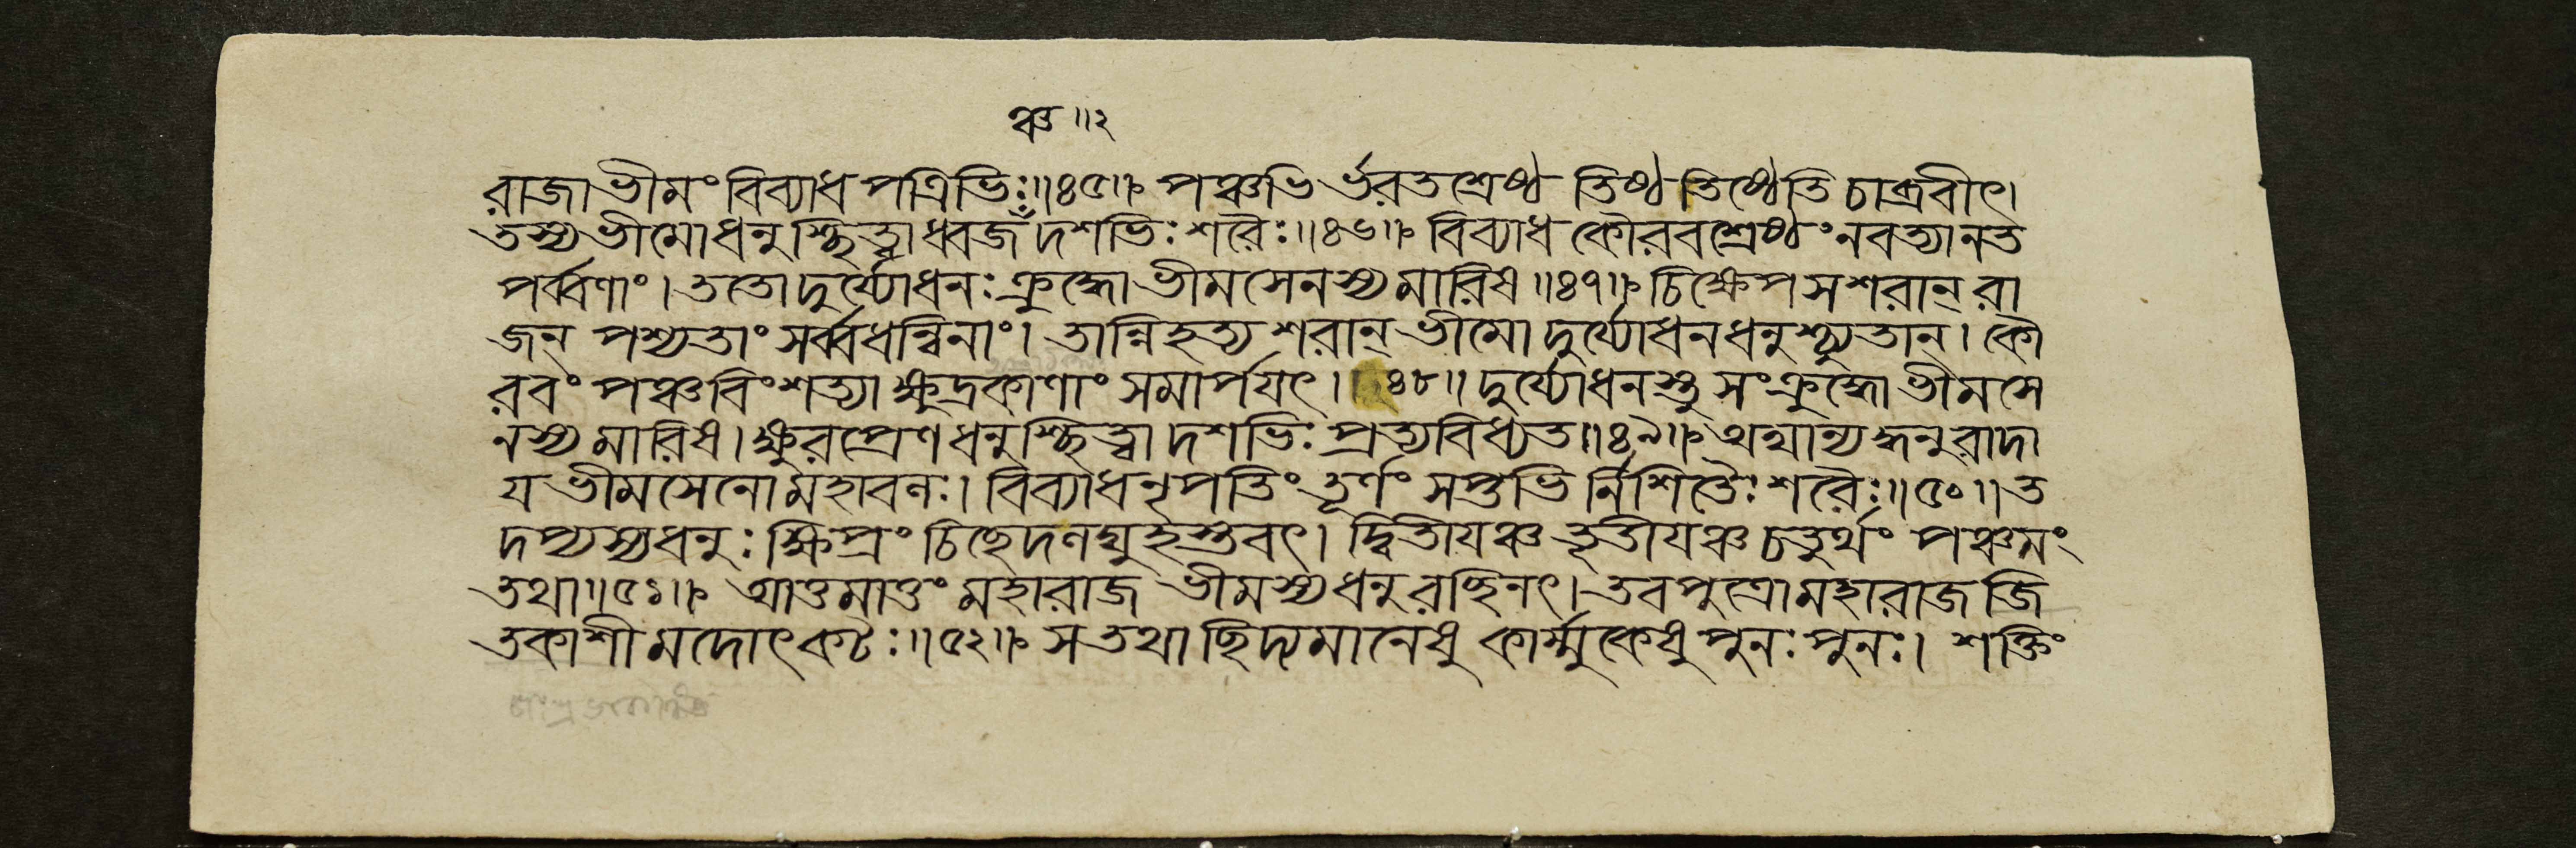 ঞ্চ ॥২
ৰাজা ভীমং বিব্যাধ পত্ৰিভিঃ॥৪৫॥ পঞ্চভি ৰ্ভৰতশ্ৰেষ্ঠ তিষ্ঠ তিষ্ঠেতি চাব্ৰবীৎ।
তস্য ভীমো ধনুশ্ছিত্ত্বা ধ্বজঁ দশভিঃ শৰৈঃ॥৪৬॥ বিব্যাধ কৌৰবশ্ৰেষ্ঠং নবত্যা নত
পৰ্ব্বণাং। ততো দুৰ্য্যোধনঃ ক্ৰুদ্ধো ভীমসেনস্য মাৰিষ॥৪৭॥ চিক্ষেপ স শৰান্ ৰা
জন্ পশ্যতাং সৰ্ব্বধন্বিনাং। তান্নিহত্য শৰান্ ভীমো দুৰ্য্যোধনধনুশ্চ্যুতান্। কৌ
ৰবং পঞ্চবিংশত্যা ক্ষুদ্ৰকাণাং সমাৰ্পযৎ।॥৪৮॥ দুৰ্য্যোধনস্তু সংক্ৰুদ্ধো ভীমসে
নস্য মাৰিষ। ক্ষুৰপ্ৰেণ ধনুশ্ছিত্ত্বা দশভিঃ প্ৰত্যবিধ্যত॥৪৯॥ অথান্যদ্ধনুৰাদা
য ভীমসেনো মহাবলঃ। বিব্যাধ নৃপতিং তূৰ্ণং সপ্তভি ৰ্নিশিতৈঃ শৰৈঃ॥৫০॥ ত
দপ্যস্য ধনুঃ ক্ষিপ্ৰং চিচ্ছেদ লঘুহস্তবৎ। দ্বিতীযঞ্চ তৃতীযঞ্চ চতুৰ্থং পঞ্চমং
তথা॥৫১॥ আত্তমাত্তং মহাৰাজ ভীমস্য ধনুৰচ্ছিনৎ। তব পুত্ৰো মহাৰাজ জি
তকাশী মদোৎকটঃ॥৫২॥ স তথা ছিদ্যমানেষু কাৰ্ম্মুকেষু পুনঃ পুনঃ। শক্তিং